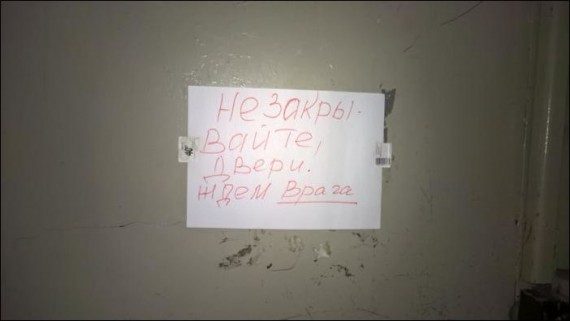 Не закры-
вайте,
двери.
Ждем врага